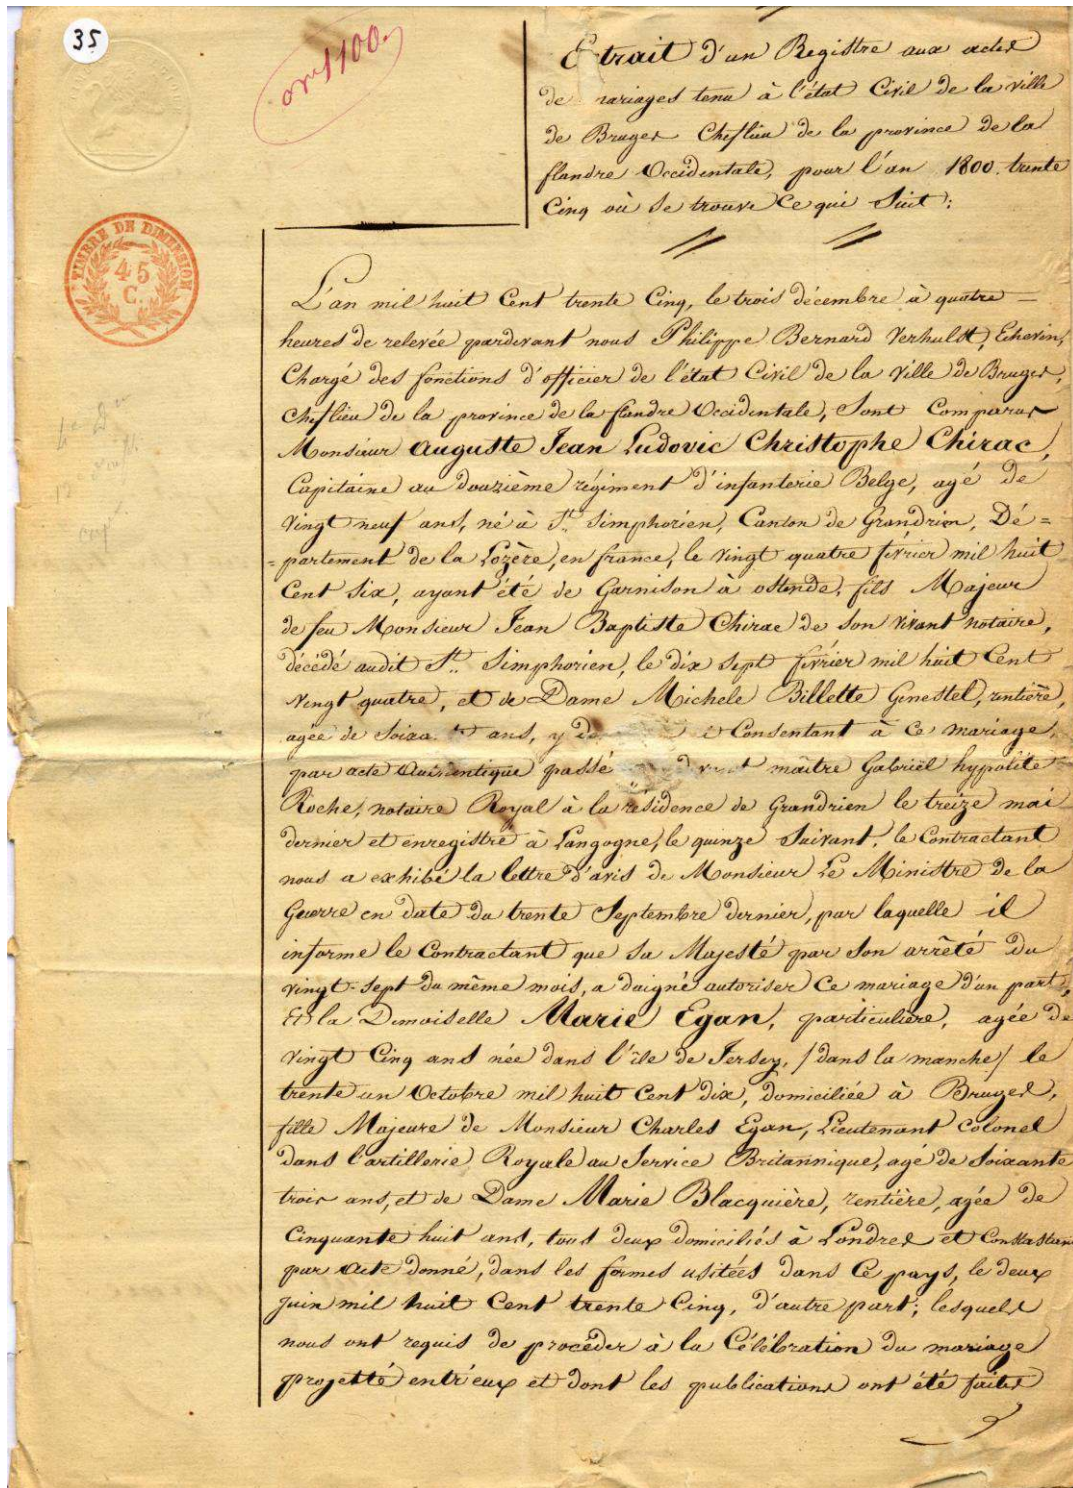 35
1100
Extrait d'un Registre aux actes
de mariages tenu à l'état Civil de la ville
de Bruges Cheflieu de la province de la
flandre Occidentale, pour l'an 1800 trente
Cinq où se trouve Ce qui Suit:
TIMBRE DE DIMENSION
45
C.
L'an mil huit Cent trente Cinq, le trois décembre à quatre
heures de relevée pardevant nous Philippe Bernard Verhulst, Echevin,
Chargé des fonctions d'officier de l'état Civil de la Ville de Bruges,
cheflieu de la province de la flandre Occidentale, Sont Comparus
Monsieur Auguste Jean Ludovic Christophe Chirac,
Capitaine au douzième régiment d'infanterie Belge, agé de
Vingt neuf ans, né à St. Simphorien, Canton de Grandrieu, Dé=
=partement de la Lozère, en france, le vingt quatre février mil huit
Cent Six, ayant été de Garnison à ostende, fils Majeur
de feu Monsieur Jean Baptiste Chirac de Son vivant notaire,
décédé audit St. Simphorien, le dix Sept février mil huit Cent
Vingt quatre, et de Dame Michele Billette Genestel, rentière,
agée de ans, y Consentant à Ce mariage,
par acte autentique passé maitre Gabriël hypolite
Roche, notaire Royal à la résidence de Grandrieu le treize mai
dernier et enregistré à Langogne, le quinze Suivant, le Contractant
nous a exhibé la lettre d'avis de Monsieur Le Ministre de la
Guerre en date du trente Septembre dernier, par laquelle il
informe le Contractant que Sa Majesté par Son arrêté du
vingt-Sept du même mois, a daigné autoriser Ce mariage d'un part,
Et la Demoiselle Marie Egan, particulière, agée de
Vingt Cinq ans née dans l'île de Jersey, /dans la manche/ le
trente un Octobre mil huit Cent dix, domiciliée à Bruges,
fille Majeure de Monsieur Charles Egan, Lieutenant Colonel
dans l'artillerie Royale au Service Britannique, agé de Soixante
trois ans, et de Dame Marie Blacquière, rentière, agée de
Cinquante huit ans, tous deux domiciliés à Londres et
par acte donné, dans les formes usitées dans Ce pays, le deux
Juin mil huit Cent trente Cinq, d'autre part; lesquels
nous ont requis de procéder à la Célébration du mariage
projetté entr'eux et dont les publications ont été faites